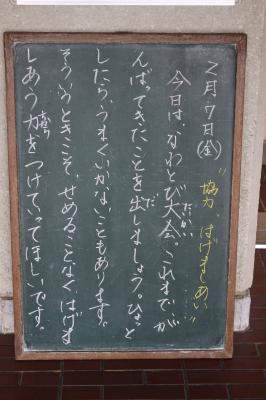 2月7日(金)
"協力、はげましあい"
今日は、なわとび大会。これまで、が
たいかい
んばってきたことを出しましょう。ひょっと
だ
したら、うまくいかないこともあります。
そういうときこそ、せめることなく、はげま
しあう力をつけていってほしいです。